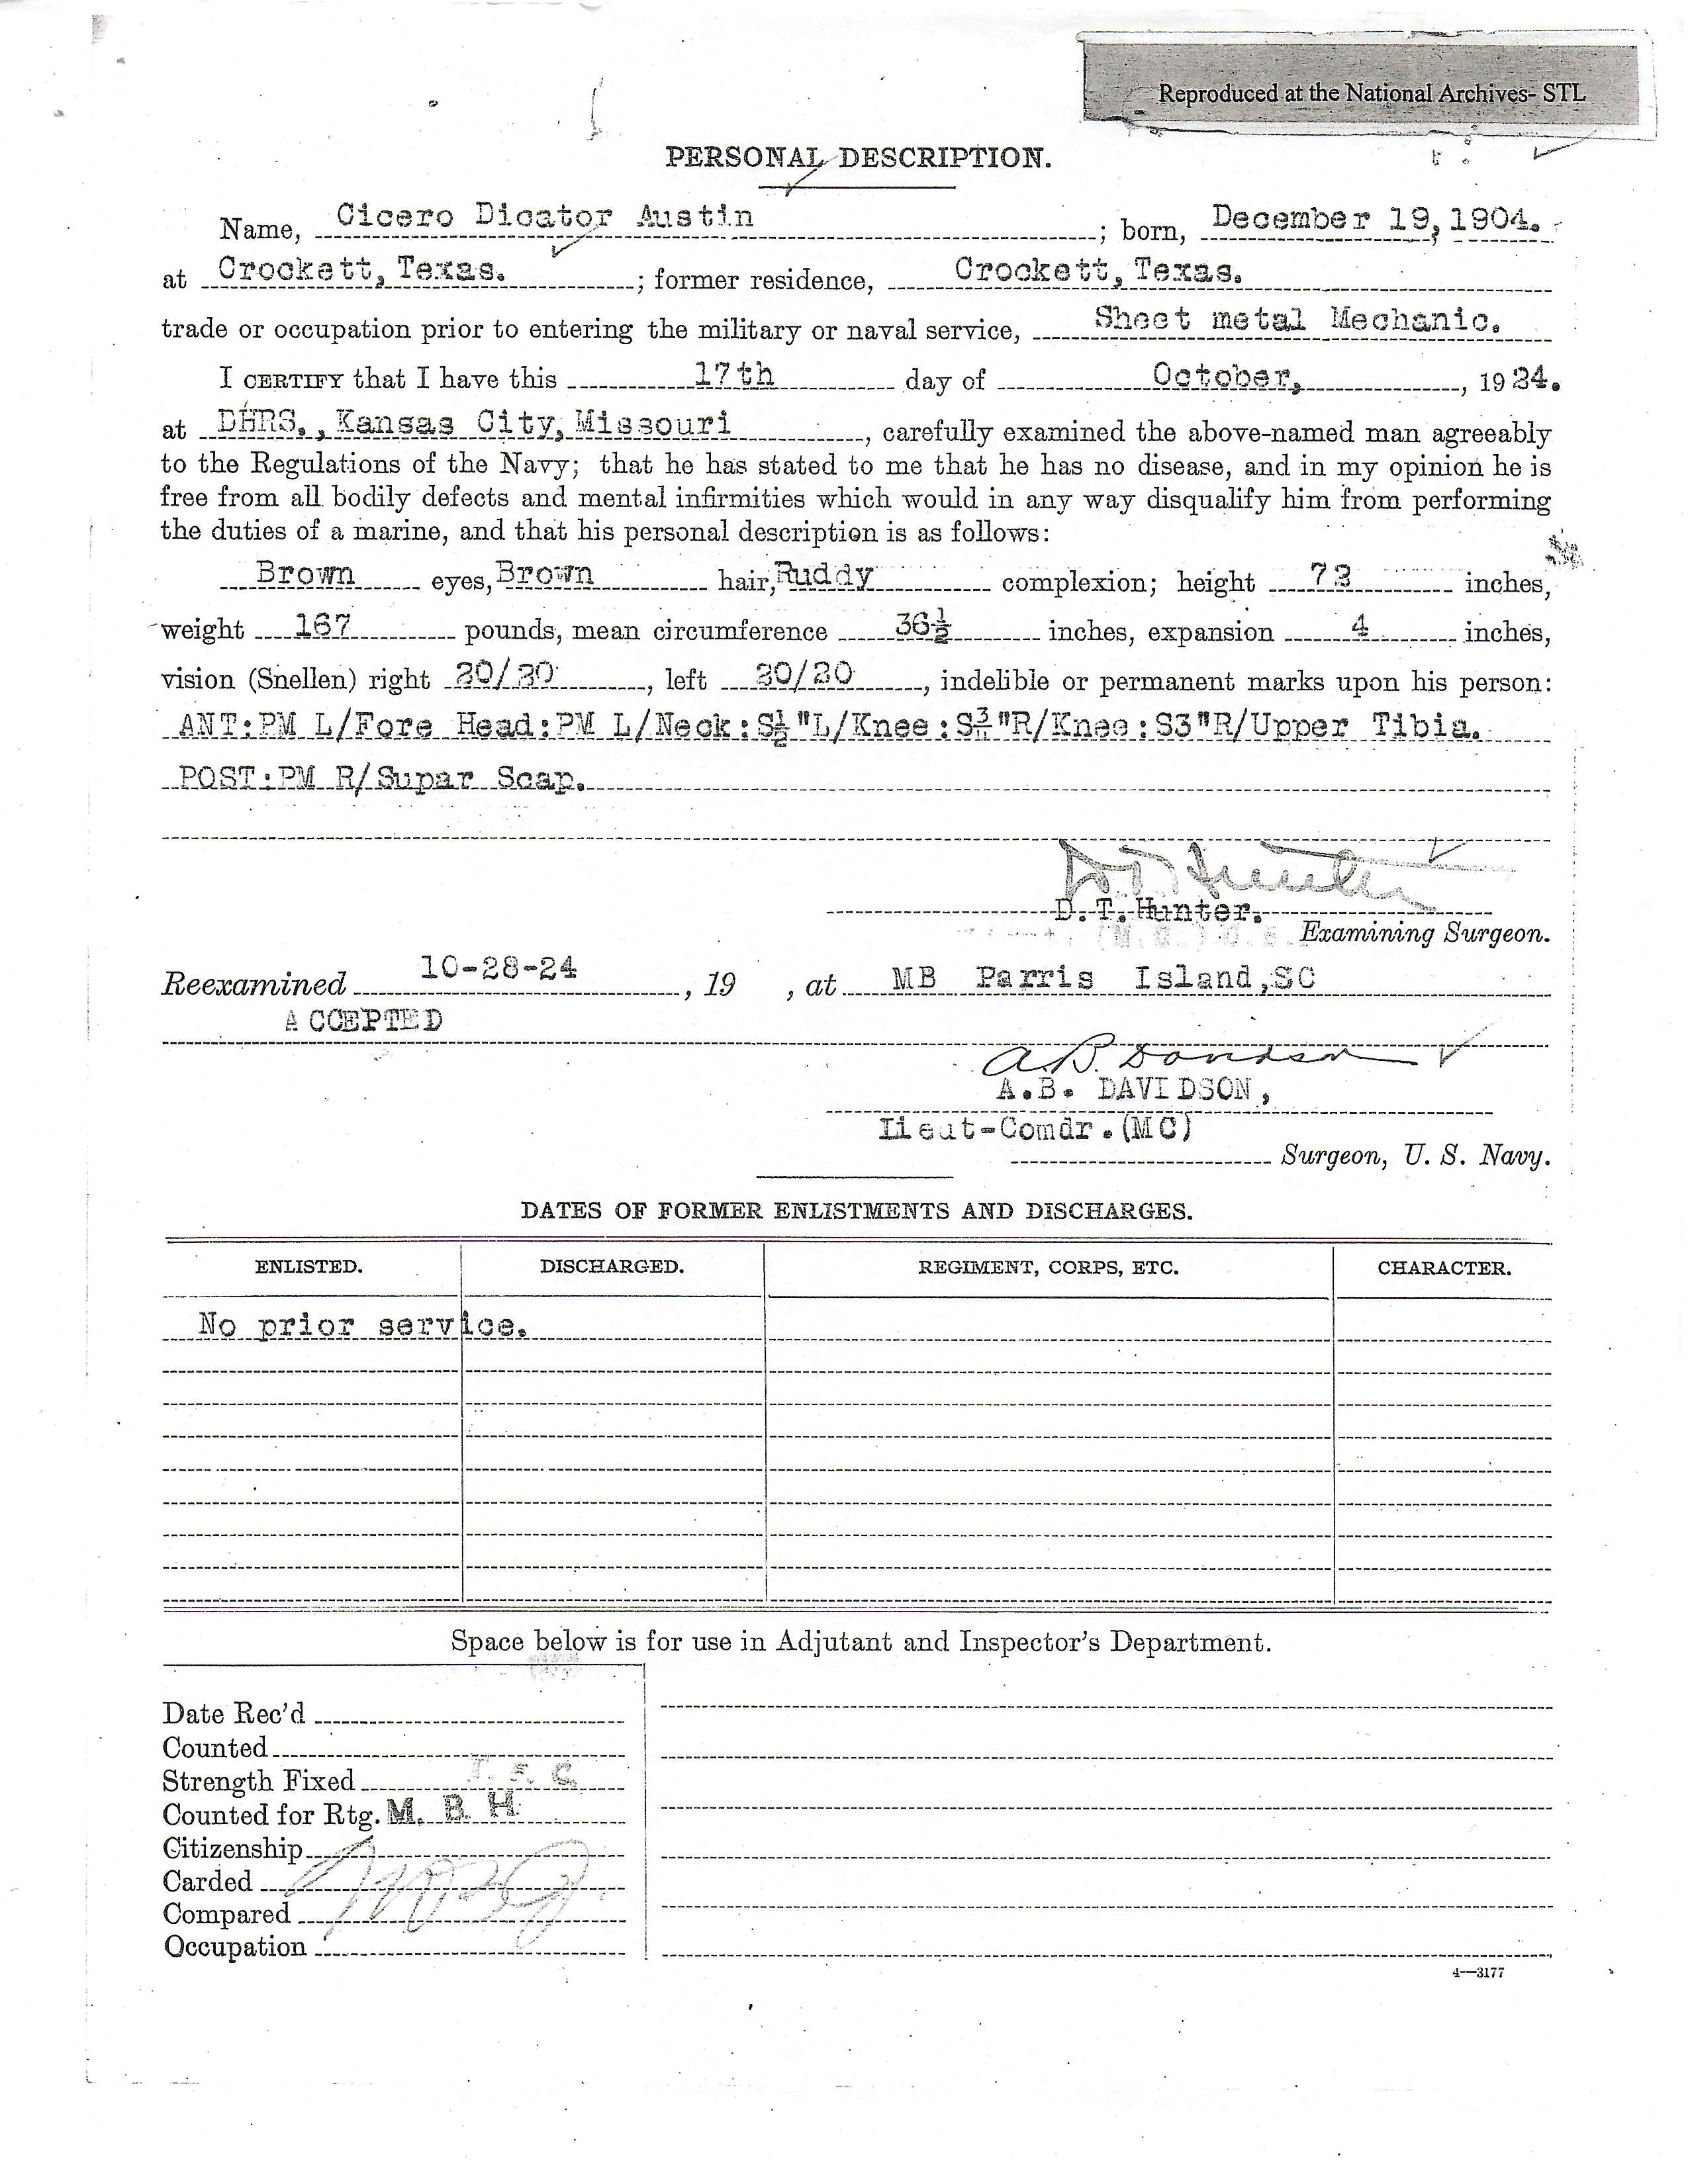 Reproduced at the National Archives- STL
PERSONAL DESCRIPTION.
Name, Cicero Dicator Austin ; born, December 19, 1904.
at Crockett, Texas. ; former residence, Crockett, Texas.
trade or occupation prior to entering the military or naval service, Sheet metal Mechanic.
I CERTIFY that I have this 17th day of October, , 1924.
at DHRS., Kansas City, Missouri , carefully examined the above-named man agreeably
to the Regulations of the Navy; that he has stated to me that he has no disease, and in my opinion he is
free from all bodily defects and mental infirmities which would in any way disqualify him from performing
the duties of a marine, and that his personal description is as follows:
Brown eyes, Brown hair, Ruddy complexion; height inches,
weight 167 pounds, mean circumference 36½ inches, expansion 4 inches,
vision (Snellen) right 20/20 , left 20/20 , indelible or permanent marks upon his person:
ANT:PM L/Fore Head:PM L/Neck:S½"L/Knee:S "R/Knee:S3"R/Upper Tibia.
POST:PM R/Supar Scap.
D. T. Hunter.
Examining Surgeon.
Reexamined 10-28-24 , 19 , at MB Parris Island, SC
ACCEPTED
A.B. Davidson
A.B. DAVIDSON,
Lieut-Comdr.(MC)
Surgeon, U. S. Navy.
DATES OF FORMER ENLISTMENTS AND DISCHARGES.
ENLISTED. DISCHARGED. REGIMENT, CORPS, ETC. CHARACTER.
No prior service.
Space below is for use in Adjutant and Inspector's Department.
Date Rec'd
Counted
Strength Fixed
Counted for Rtg. M. B. H.
Citizenship
Carded
Compared
Occupation
4—3177